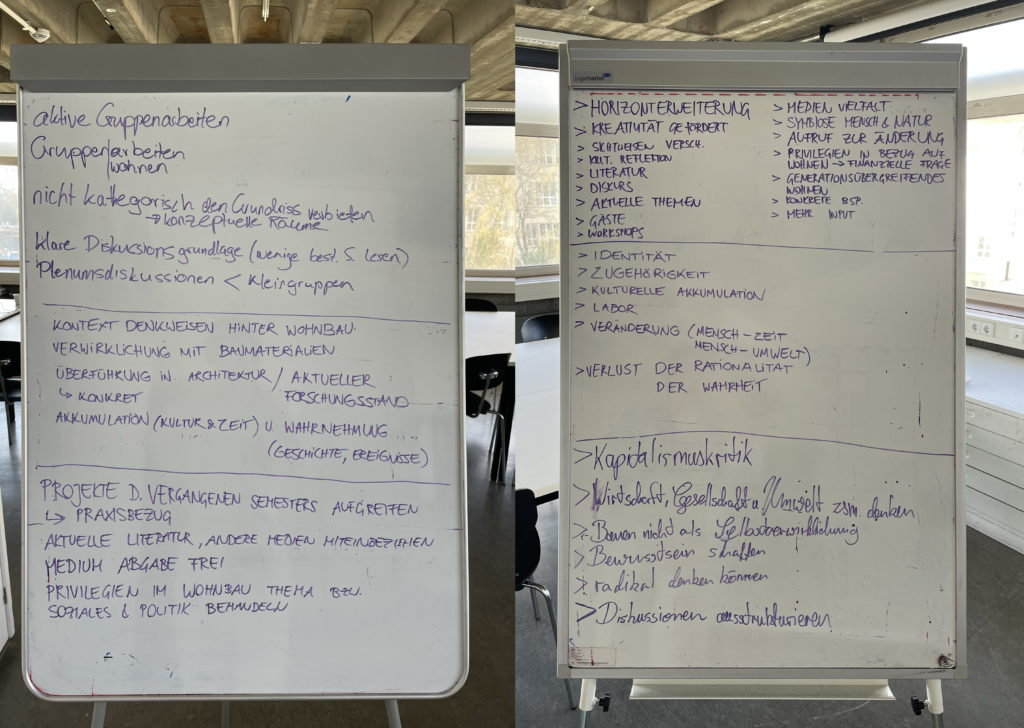 aktive Gruppenarbeiten
Gruppen/arbeiten
/wohnen
nicht kategorisch den Grundriss verbieten
→ konzeptuelle Räume
klare Diskussionsgrundlage (wenige best. S. lesen)
Plenumsdiskussionen < Kleingruppen
KONTEXT DENKWEISEN HINTER WOHNBAU
VERWIRKLICHUNG MIT BAUMATERIALIEN
ÜBERFÜHRUNG IN ARCHITEKTUR / AKTUELLER
↳ KONKRET FORSCHUNGSSTAND
AKKUMULATION (KULTUR & ZEIT) U WAHRNEHMUNG
(GESCHICHTE, EREIGNISSE)
PROJEKTE D. VERGANGENEN SEMESTERS AUFGREIFEN
↳ PRAXISBEZUG
AKTUELLE LITERATUR, ANDERE MEDIEN MITEINBEZIEHEN
MEDIUM ABGABE FREI
PRIVILEGIEN IM WOHNBAU THEMA BZW.
SOZIALES & POLITIK BEHANDELN
legamaster
> HORIZONTERWEITERUNG
> KREATIVITÄT GEFÖRDERT
> SICHTWEISEN VERSCH.
> KRIT. REFLEKTION
> LITERATUR
> DISKURS
> AKTUELLE THEMEN
> GÄSTE
> WORKSHOPS
> MEDIEN VIELFALT
> SYMBIOSE MENSCH & NATUR
> AUFRUF ZUR ÄNDERUNG
> PRIVILEGIEN IN BEZUG AUF
WOHNEN → FINANZIELLE FRAGE
> GENERATIONSÜBERGREIFENDES
WOHNEN
> KONKRETE BSP.
> MEHR INPUT
> IDENTITÄT
> ZUGEHÖRIGKEIT
> KULTURELLE AKKUMULATION
> LABOR
> VERÄNDERUNG (MENSCH – ZEIT
MENSCH – UMWELT)
> VERLUST DER RATIONALITÄT
DER WAHRHEIT
> Kapidalismuskritik
> Wirtschaft, Gesellschaft u Umwelt zsm. denken
> Bauen nicht als Selbstverwirklichung
> Bewusstsein schaffen
> radikal denken können
> Diskussionen ausstrukturieren